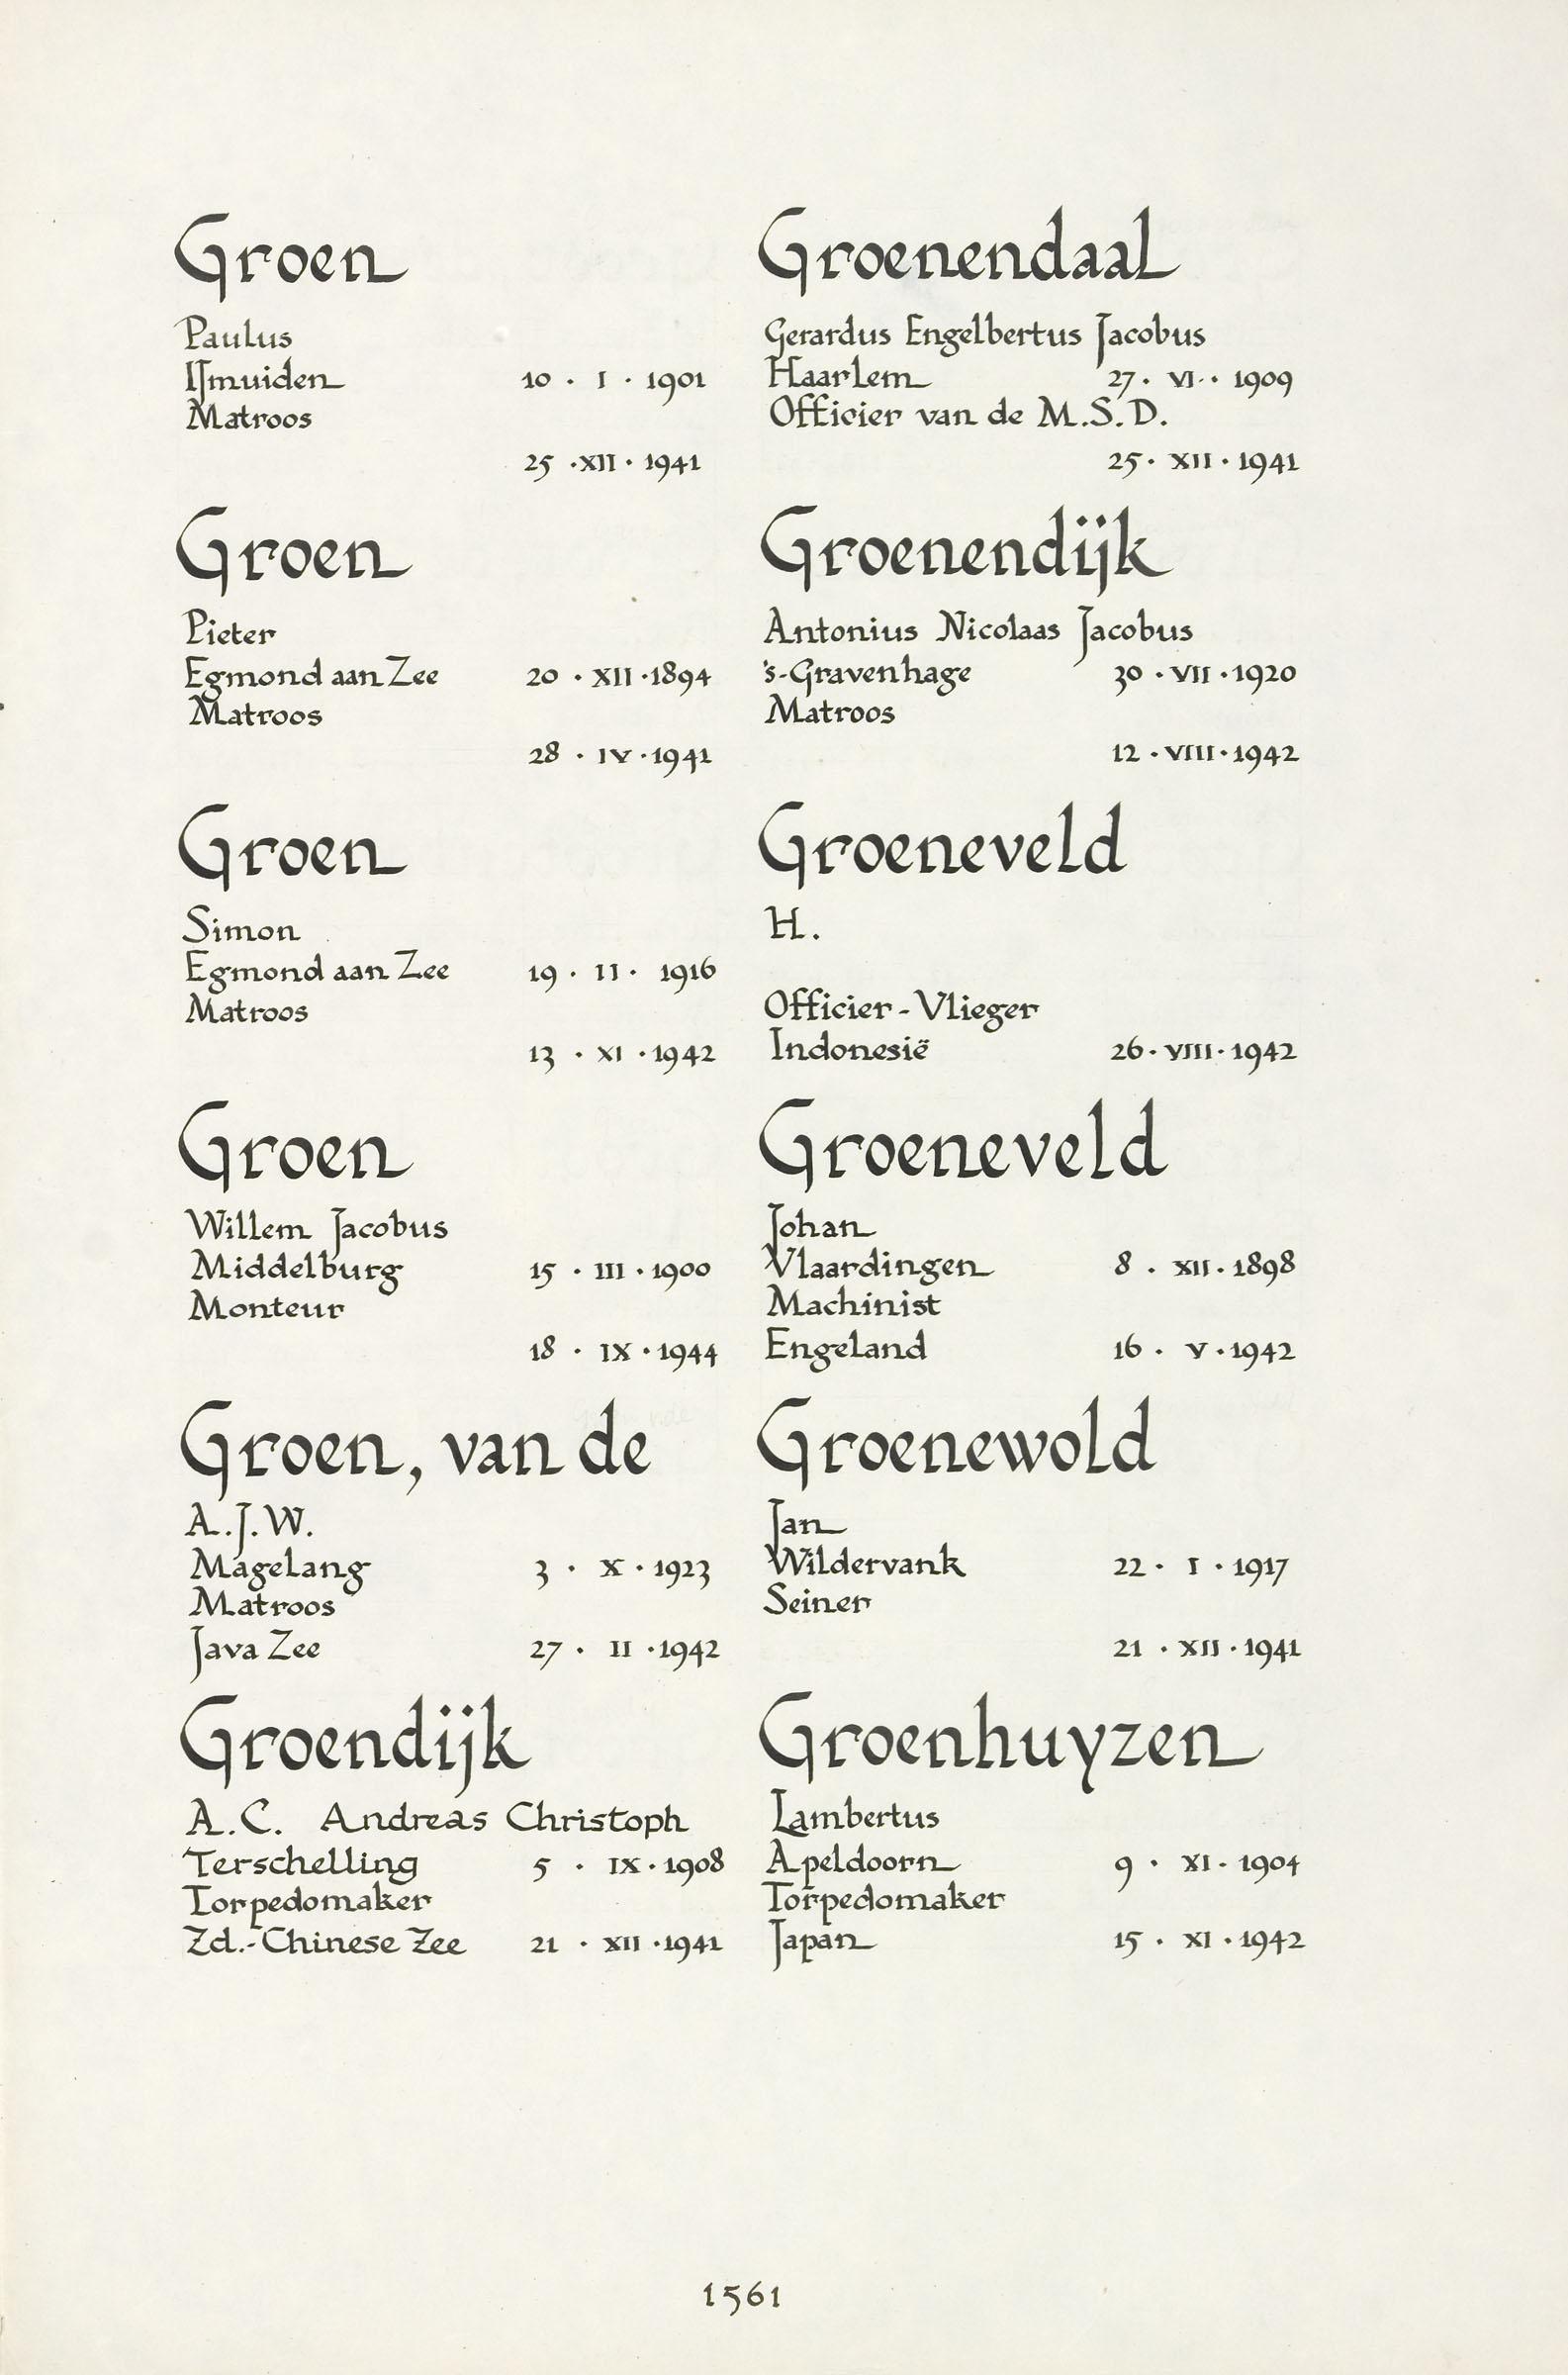 Groen
Paulus
IJmuiden 10 · I · 1901
Matroos
25 · XII · 1941
Groen
Pieter
Egmond aan Zee 20 · XII · 1894
Matroos
28 · IV · 1941
Groen
Simon
Egmond aan Zee 19 · II · 1916
Matroos
13 · XI · 1942
Groen
Willem Jacobus
Middelburg 15 · III · 1900
Monteur
18 · IX · 1944
Groen, van de
A.J.W.
Magelang 3 · X · 1923
Matroos
Java Zee 27 · II · 1942
Groendijk
A.C. Andreas Christoph
Terschelling 5 · IX · 1908
Torpedomaker
Zd.-Chinese Zee 21 · XII · 1941
Groenendaal
Gerardus Engelbertus Jacobus
Haarlem 27 · VI · 1909
Officier van de M.S.D.
25 · XII · 1941
Groenendijk
Antonius Nicolaas Jacobus
's-Gravenhage 30 · VII · 1920
Matroos
12 · VIII · 1942
Groeneveld
H.
Officier-Vlieger
Indonesië 26 · VIII · 1942
Groeneveld
Johan
Vlaardingen 8 · XII · 1898
Machinist
Engeland 16 · V · 1942
Groenewold
Jan
Wildervank 22 · I · 1917
Seiner
21 · XII · 1941
Groenhuyzen
Lambertus
Apeldoorn 9 · XI · 1904
Torpedomaker
Japan 15 · XI · 1942
1561